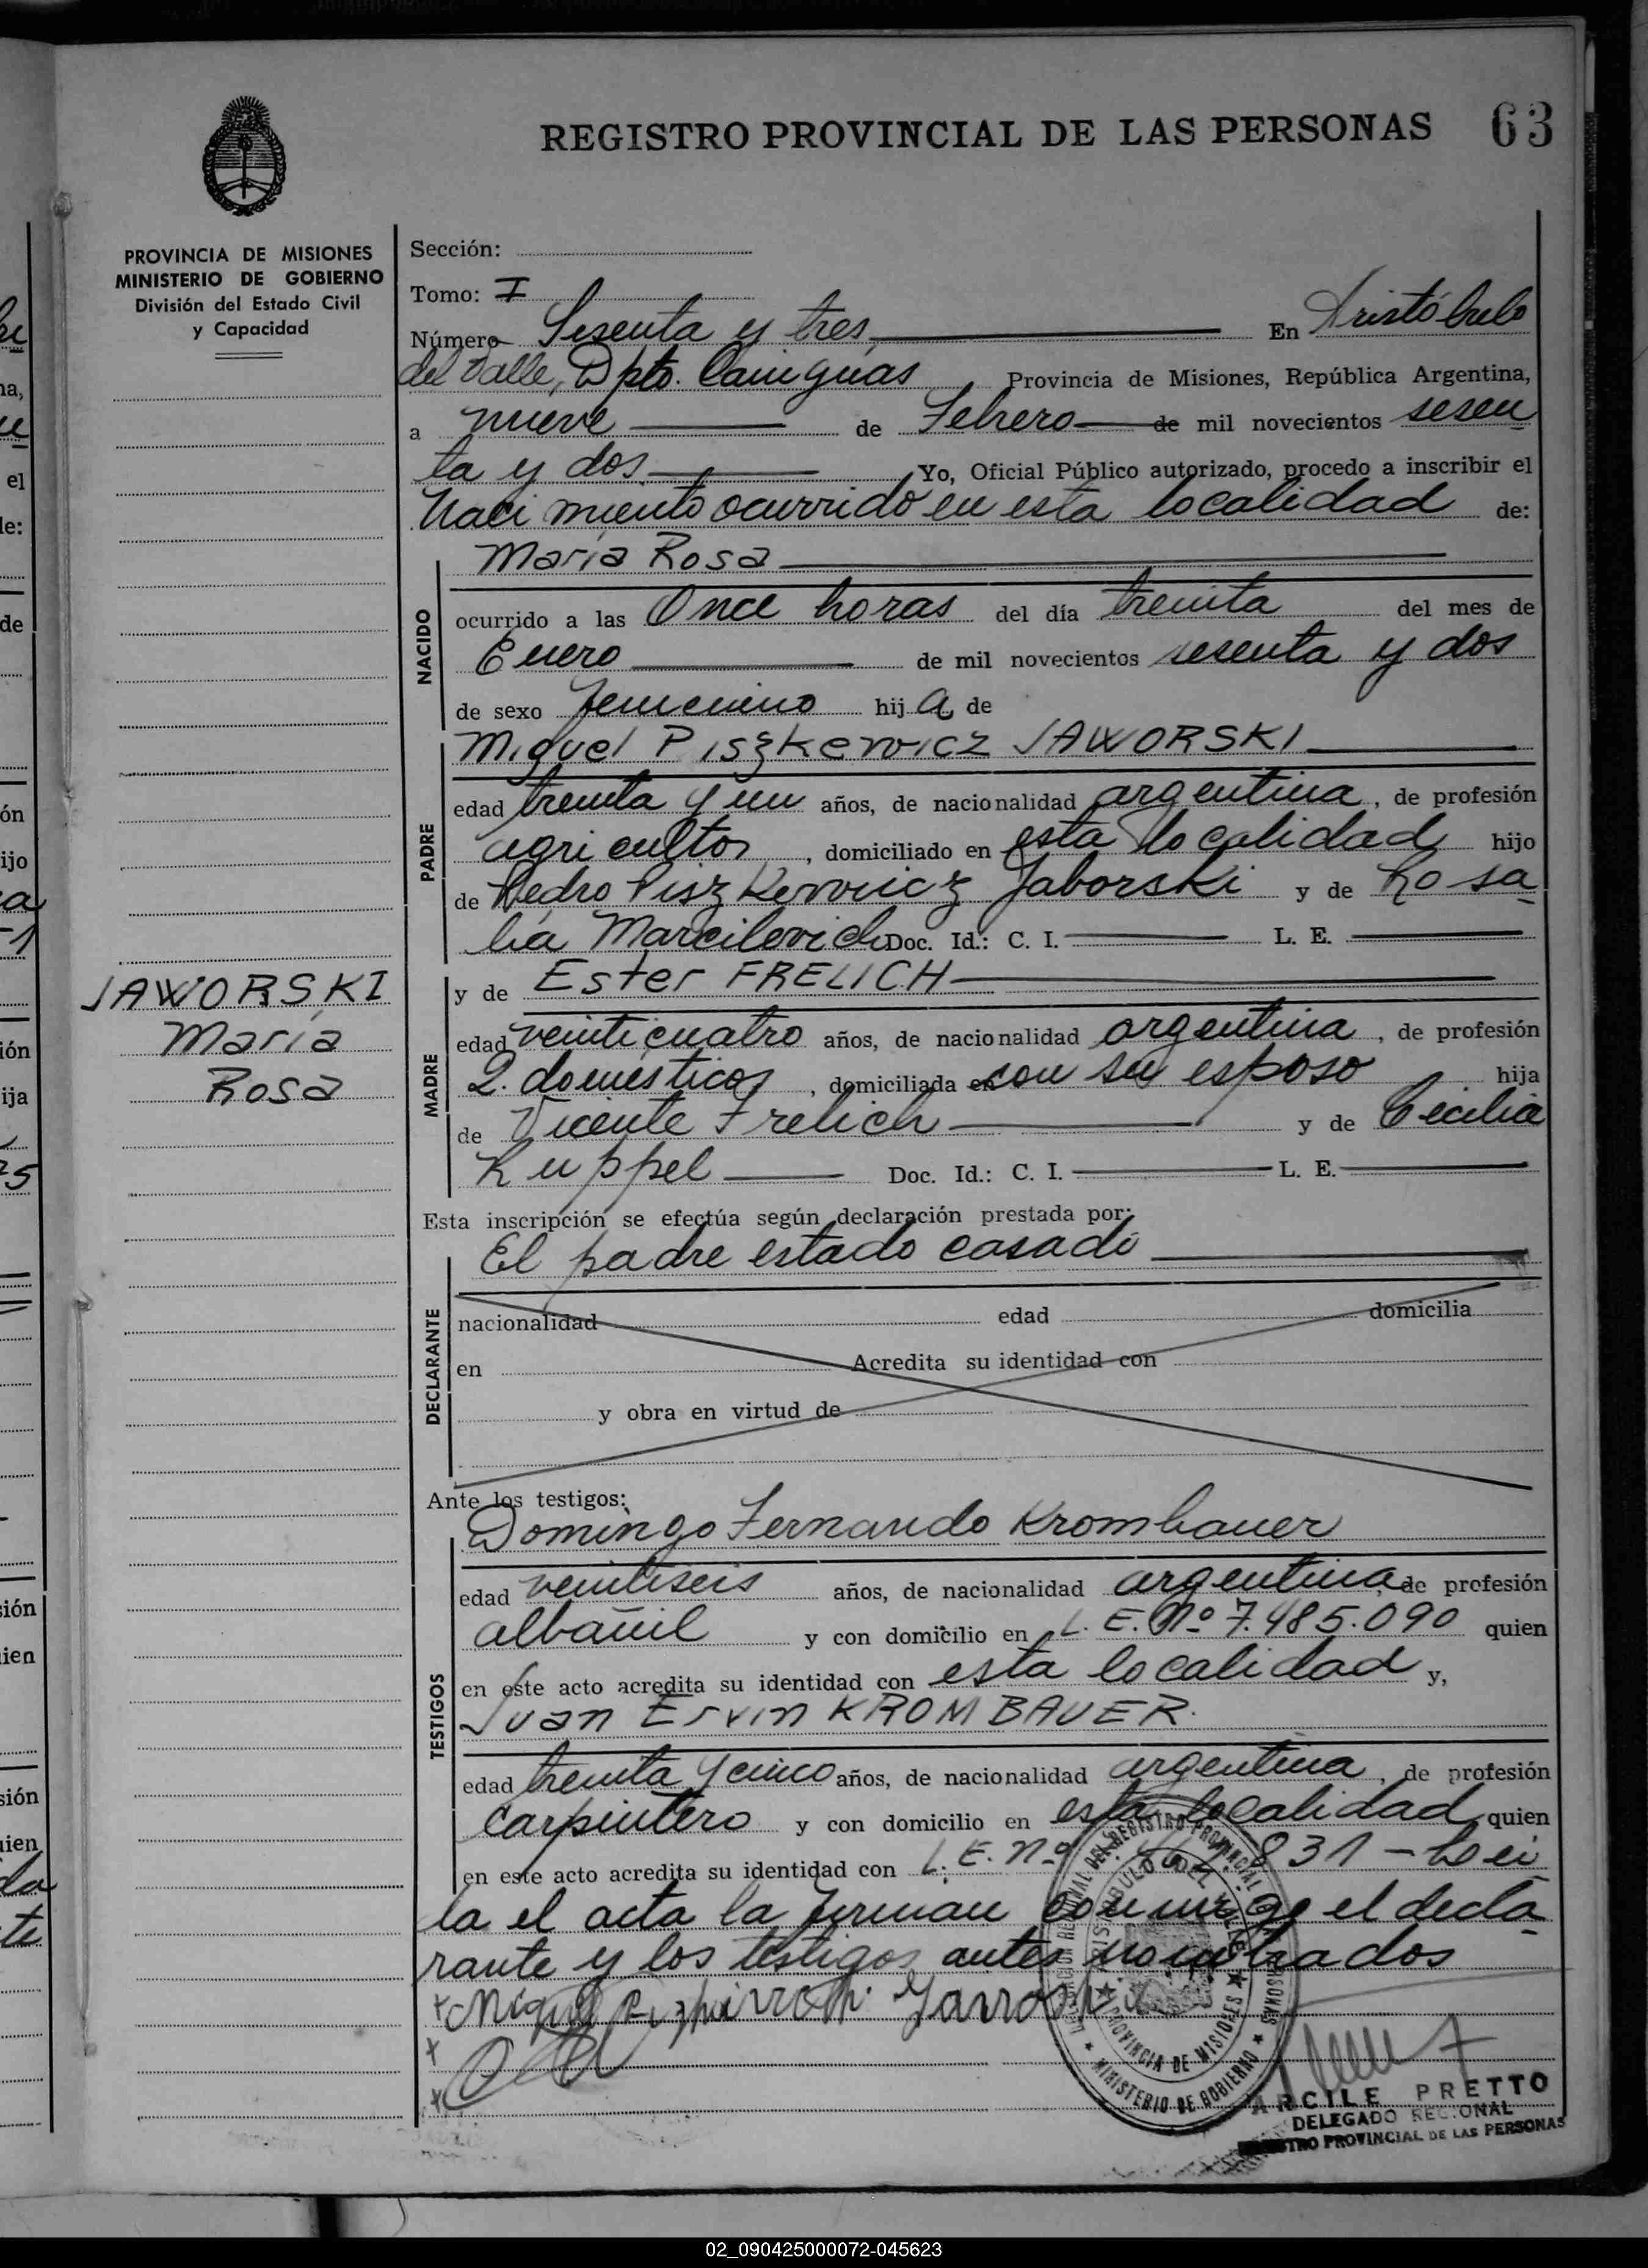 REGISTRO PROVINCIAL DE LAS PERSONAS 63
PROVINCIA DE MISIONES
MINISTERIO DE GOBIERNO
División del Estado Civil
y Capacidad
Sección:
Tomo: I
Número Sesenta y tres En Aristóbulo
del Valle, Dpto. Cainguás Provincia de Misiones, República Argentina,
a nueve de Febrero de mil novecientos sesen
ta y dos Yo, Oficial Público autorizado, procedo a inscribir el
Nacimiento ocurrido en esta localidad de:
NACIDO
María Rosa
ocurrido a las Once horas del día treinta del mes de
Enero de mil novecientos sesenta y dos
de sexo femenino hija de
PADRE
Miguel Piszkewicz JAWORSKI
edad treinta y un años, de nacionalidad argentina, de profesión
agricultor, domiciliado en esta localidad hijo
de Pedro Piszkewicz Jaborski y de Rosa
lia Marcilovich Doc. Id.: C. I. L. E.
JAWORSKI
María
Rosa
MADRE
y de Ester FRELICH
edad veinticuatro años, de nacionalidad argentina, de profesión
Q. domésticos, domiciliada en con su esposo hija
de Vicente Frelich y de Cecilia
Ruppel Doc. Id.: C. I. L. E.
Esta inscripción se efectúa según declaración prestada por:
El padre estado casado
DECLARANTE
nacionalidad edad domicilia
en Acredita su identidad con
y obra en virtud de
Ante los testigos:
TESTIGOS
Domingo Fernando Krombauer
edad veintiseis años, de nacionalidad argentina de profesión
albañil y con domicilio en L. E. Nº 7.485.090 quien
en este acto acredita su identidad con esta localidad y,
Juan Ervin KROMBAUER.
edad treinta y cinco años, de nacionalidad argentina, de profesión
carpintero y con domicilio en esta localidad quien
en este acto acredita su identidad con L. E. nº 831 - Leí
la el acta la firman conmigo el decla
rante y los testigos antes nombrados
DELEGACION REGIONAL DEL REGISTRO PROVINCIAL DE LAS PERSONAS
ARISTOBULO DEL VALLE
PROVINCIA DE MISIONES
MINISTERIO DE GOBIERNO
ARCILE PRETTO
DELEGADO REGIONAL
REGISTRO PROVINCIAL DE LAS PERSONAS
02_090425000072-045623